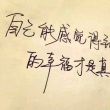 自己能感觉得到
的幸福才是真